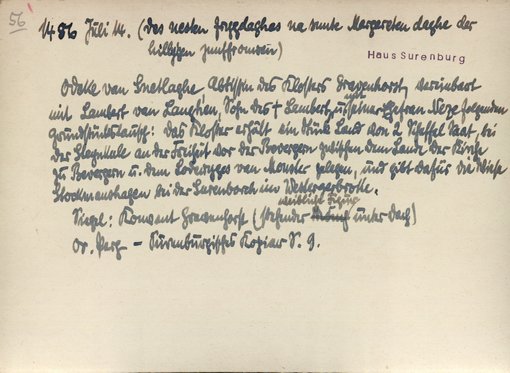 56
1486 Juli 14. (des nesten frygdaghes na sunte Margareten daghe der
hilligen junffrouwen)
Haus Surenburg
Odelle van Snetlaghe Äbtissin des Klosters Gravenhorst, vereinbart
mit Lambert van Langhen, Sohn des † Lambert, u. seiner Ehefrau Neze folgenden
Grundstückstausch: das Kloster erhält ein Stück Land von 2 Scheffel Saat, bei
der Sleghtale an der Freiheit vor der Bevergern zwischen dem Lande der Kirche
zu Bevergern u. dem Lodewyges van Monster gelegen, und gibt dafür die Wiese
Stockmanshagen bei der Surenborch im Westergerbroke.
Siegel: Konvent Gravenhorst (stehender weibliche Figur unter Dach)
Or. Perg. – Surenburgisches Kopiar S. 9.